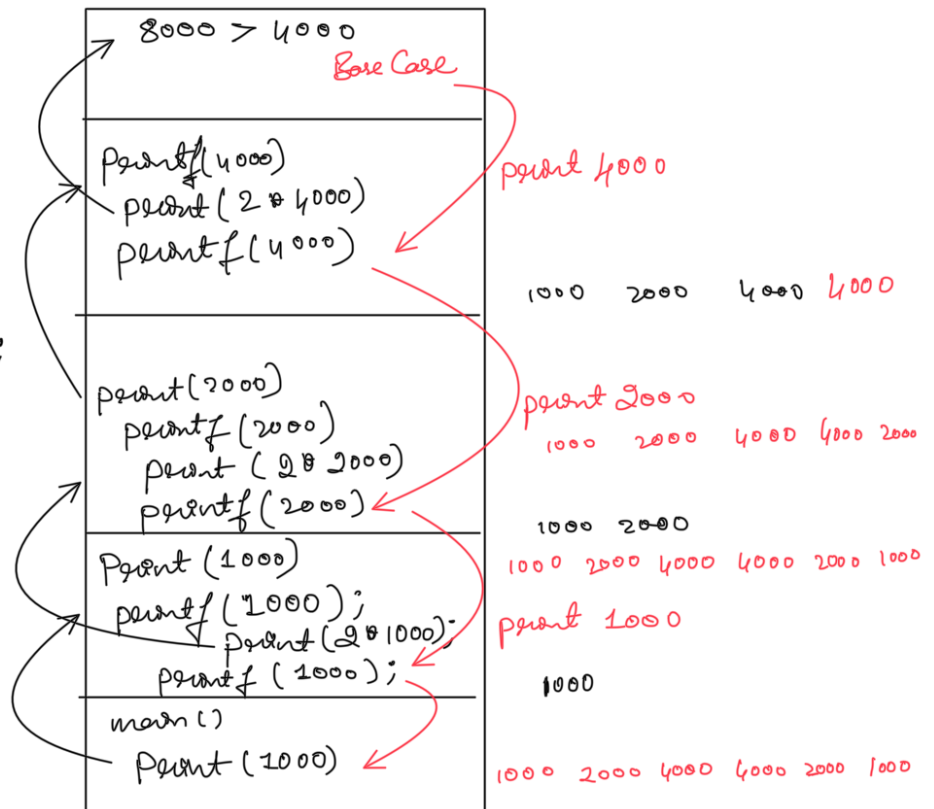 8000 > 4000
Base Case
printf(4000)
print(2*4000)
printf(4000)
print 4000
1000 2000 4000 4000
print(2000)
printf(2000)
print(2*2000)
printf(2000)
print 2000
1000 2000 4000 4000 2000
1000 2000
Print(1000)
printf(1000);
print(2*1000);
printf(1000);
1000 2000 4000 4000 2000 1000
print 1000
1000
main()
Print(1000)
1000 2000 4000 4000 2000 1000